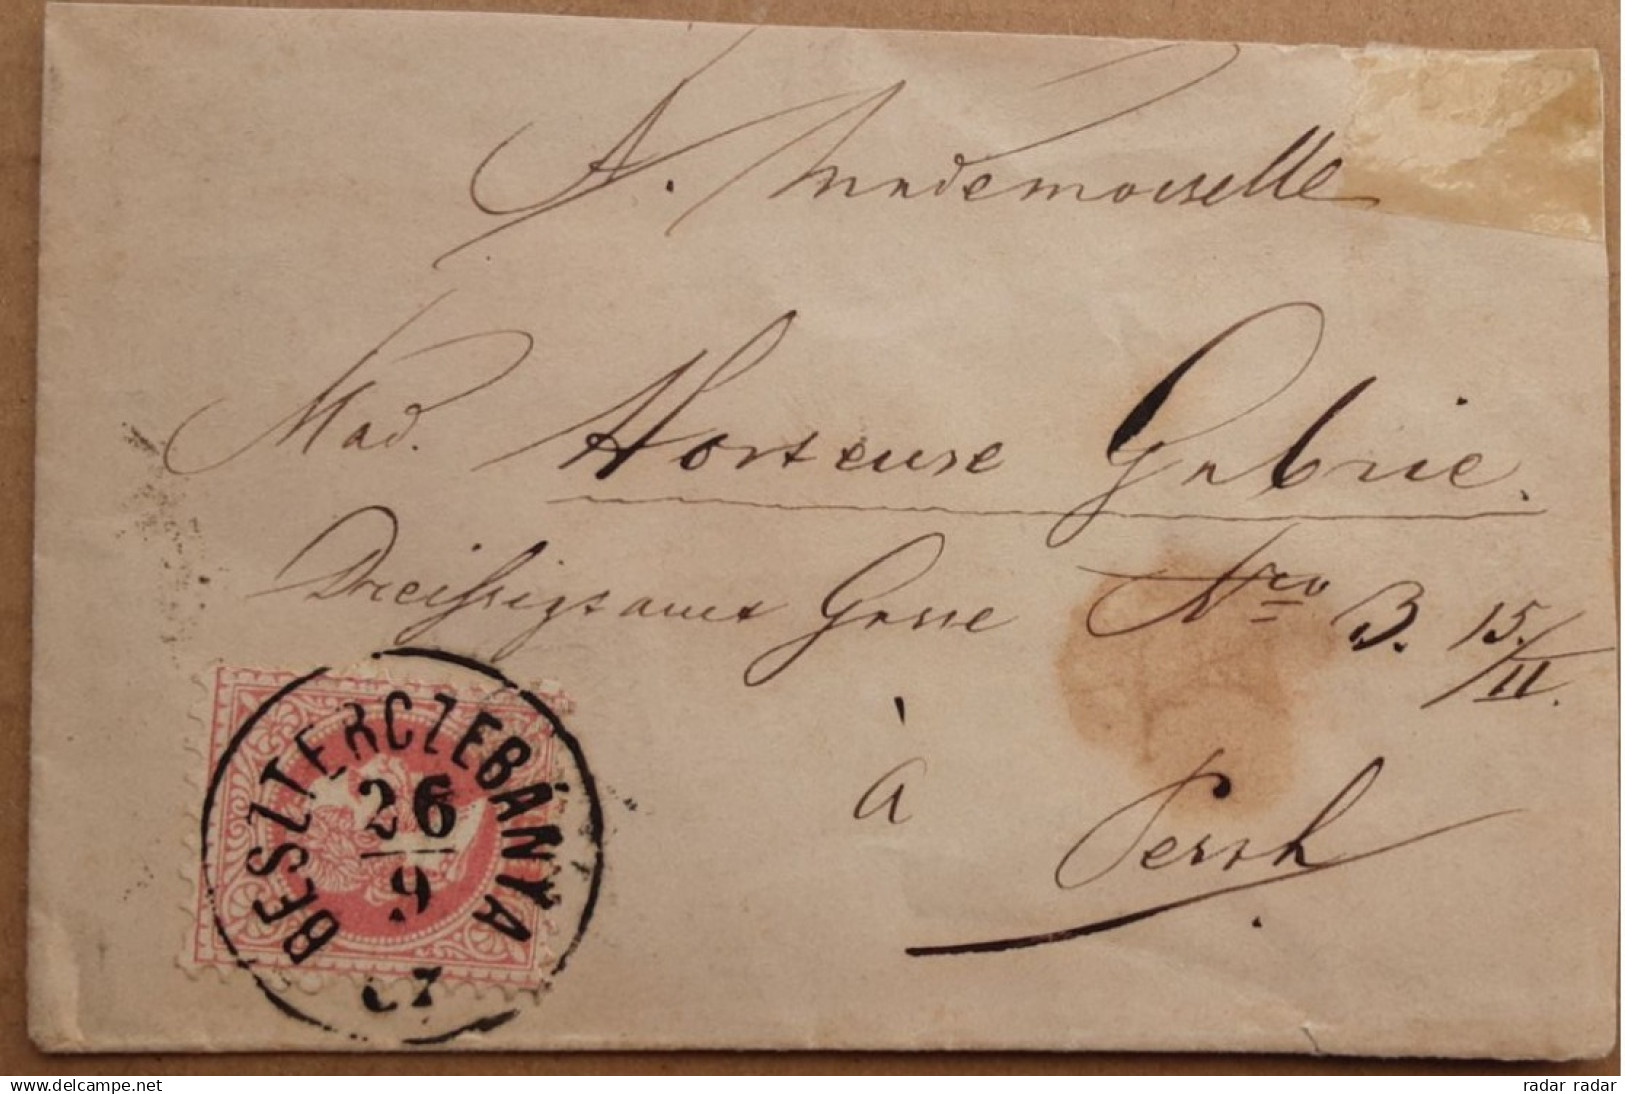 A. Mademoiselle
Mad. Hortense Gabrie.
Dreissigstamt Gasse Nro 3. 15./II.
à
Pesth
BESZTERCZEBÁNYA
26
9
67
www.delcampe.net
radar radar